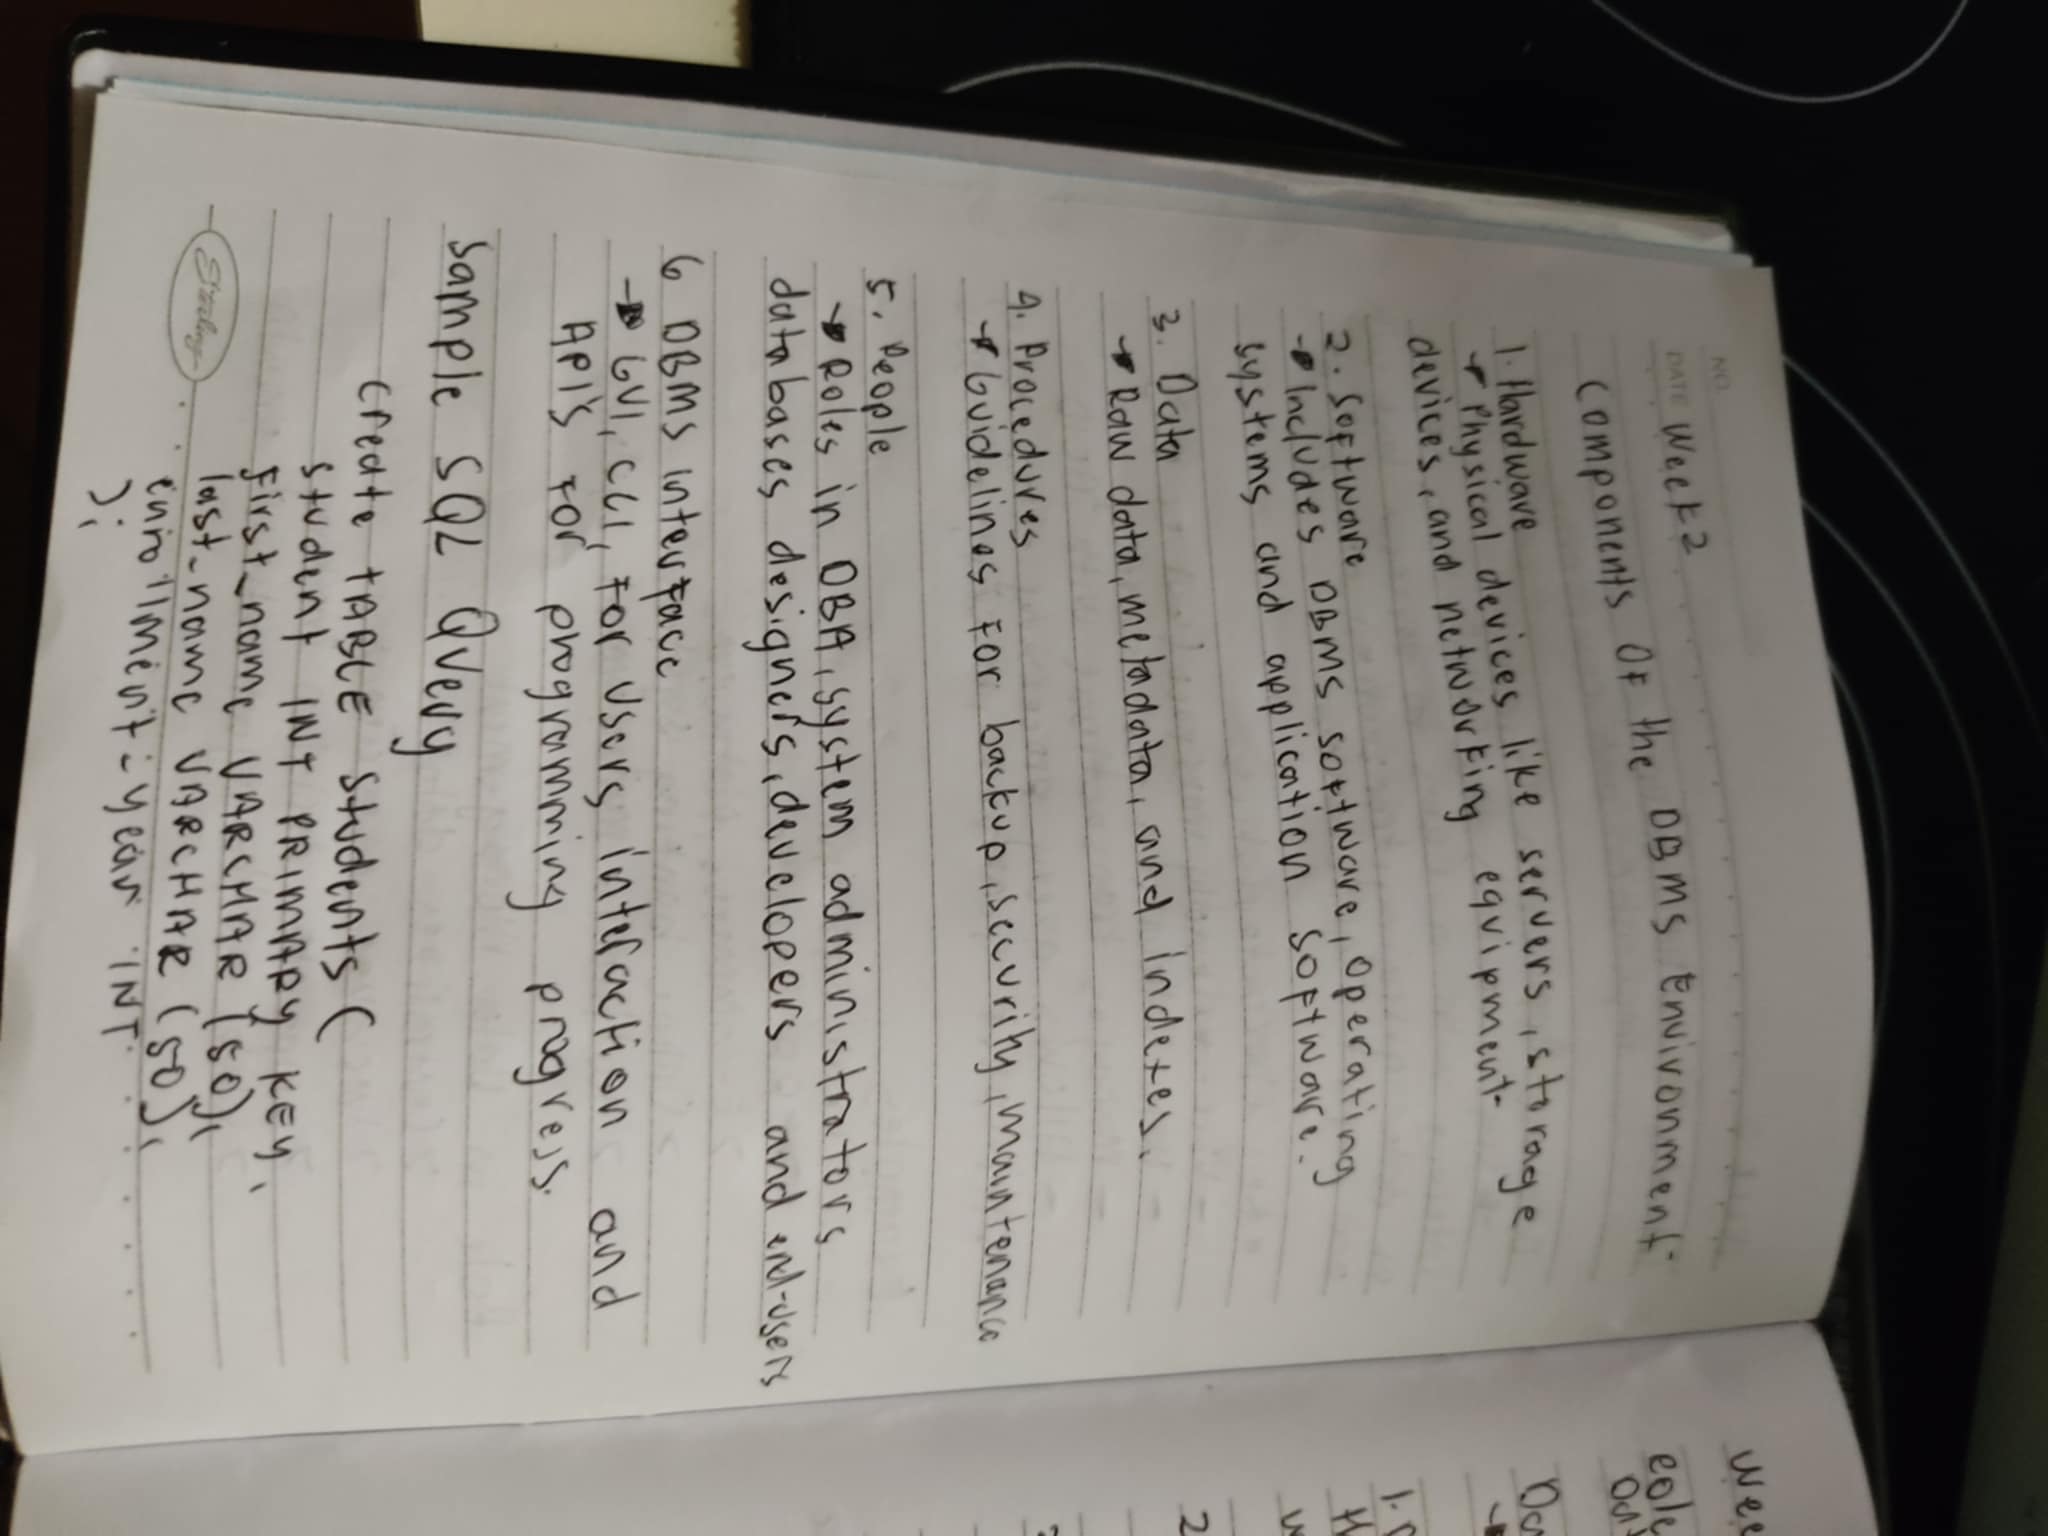 NO.
DATE Week 2
Components Of the DBMS Environment
1. Hardware
→ Physical devices like servers, storage
devices, and networking equipment.
2. Software
→ Includes DBMS software, operating
systems and application software.
3. Data
→ Raw data, metadata, and Indexes.
4. Procedures
→ Guidelines For backup, security, maintenance
5. People
→ Roles in DBA, system administrators
databases designers, developers and end-users
6 DBMS interface
→ GUI, CLI, For users interaction and
API's For programming progress.
Sample SQL Query
Create TABLE Students (
Student INT PRIMARY KEY,
First_name VARCHAR (50),
last_name VARCHAR (50),
enrollment-year INT
);
Sterling
Wee